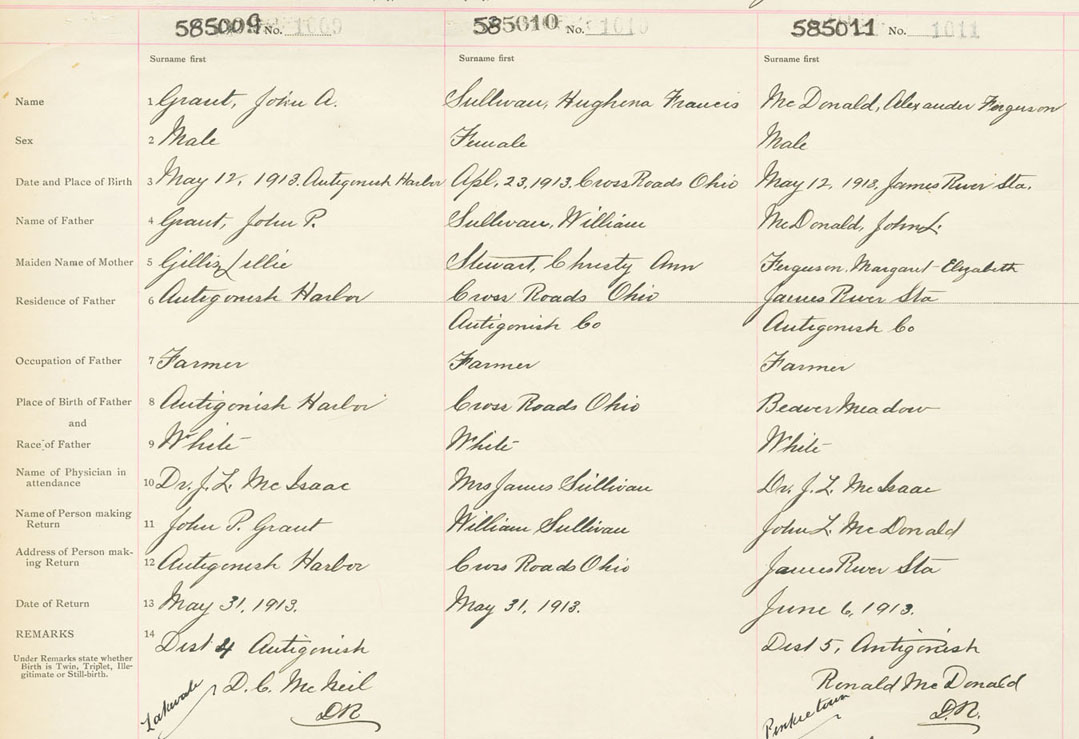 585009 No. 1009 585010 No. 1010 585011 No. 1011
Surname first Surname first Surname first
Name 1 Grant, John A. Sullivan, Hughena Francis McDonald, Alexander Ferguson
Sex 2 Male Female Male
Date and Place of Birth 3 May 12, 1913. Antigonish Harbor Apl. 23, 1913. Cross Roads Ohio May 12, 1913, James River Sta.
Name of Father 4 Grant, John P. Sullivan, William McDonald, John L.
Maiden Name of Mother 5 Gillis, Lillie Stewart, Christy Ann Ferguson, Margaret Elizabeth
Residence of Father 6 Antigonish Harbor Cross Roads Ohio James River Sta
Antigonish Co Antigonish Co
Occupation of Father 7 Farmer Farmer Farmer
Place of Birth of Father 8 Antigonish Harbor Cross Roads Ohio Beaver Meadow
and
Race of Father 9 White White White
Name of Physician in
attendance 10 Dr. J. L. McIsaac Mrs James Sullivan Dr. J. L. McIsaac
Name of Person making
Return 11 John P. Grant William Sullivan John L. McDonald
Address of Person mak-
ing Return 12 Antigonish Harbor Cross Roads Ohio James River Sta
Date of Return 13 May 31, 1913. May 31, 1913. June 6, 1913.
REMARKS 14 Dist 4 Antigonish Dist 5, Antigonish
Under Remarks state whether
Birth is Twin, Triplet, Ille-
gitimate or Still-birth.
D. C. McNeil Ronald McDonald
Lakevale DR Pinkietown D.R.